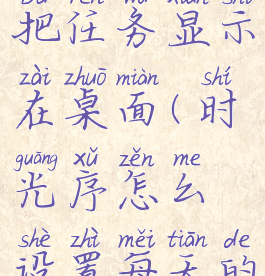 bǎ rèn wù xiǎn shì
把任务显示
zài zhuō miàn shí
在桌面(时
guāng xǔ zěn me
光序怎么
shè zhì měi tiān de
设置每天的